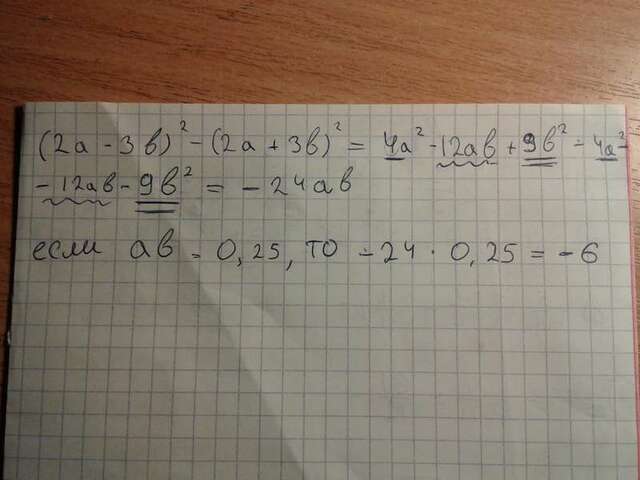 (2а - 3в)² - (2а + 3в)² = 4а² - 12ав + 9в² - 4а² -
- 12ав - 9в² = - 24ав
если ав = 0,25, то - 24 · 0,25 = - 6